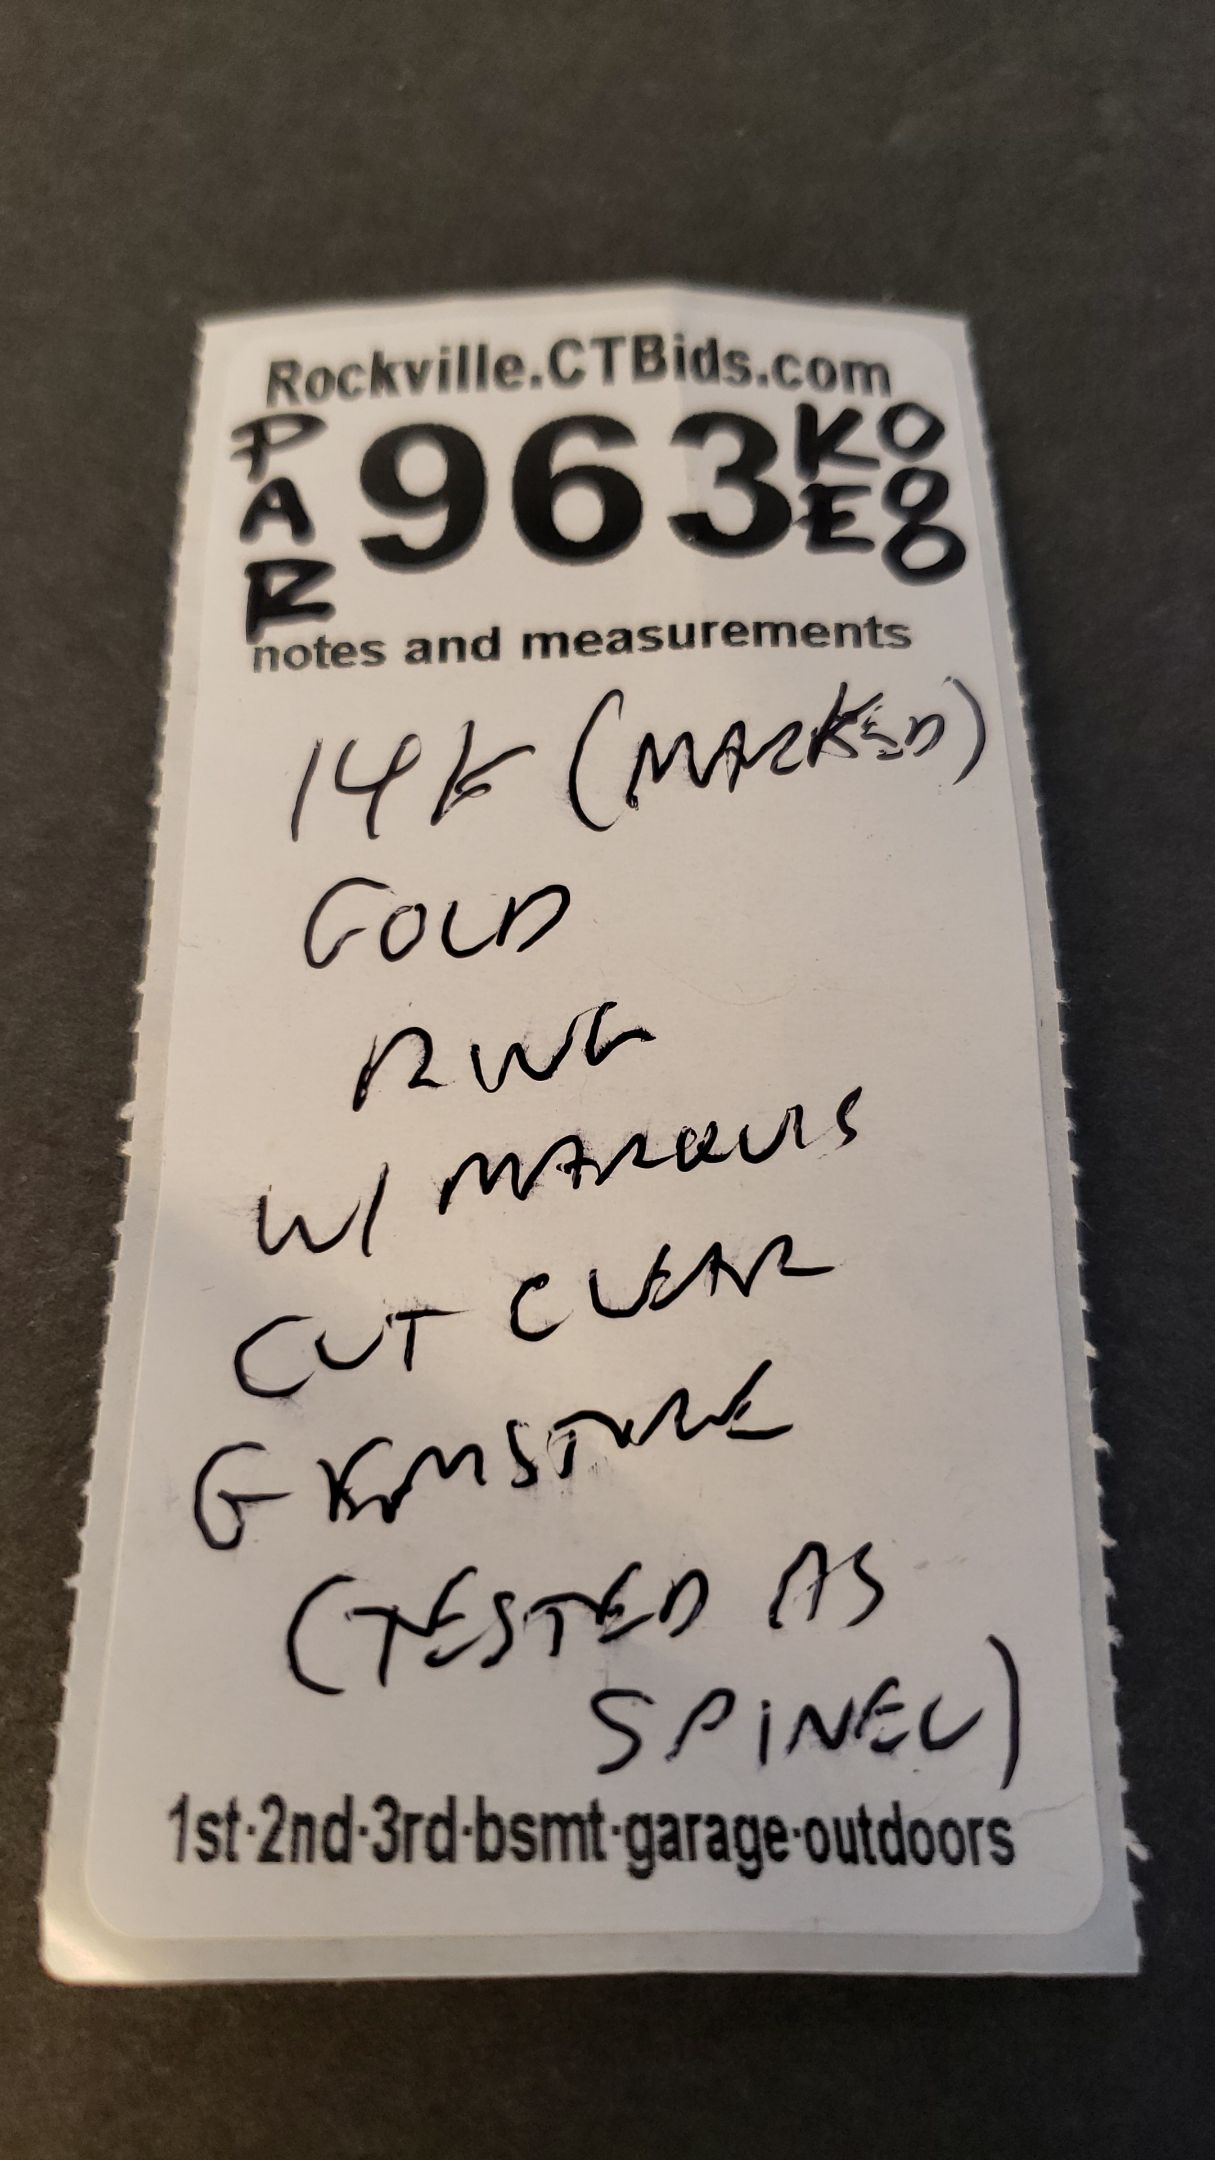 Rockville.CTBids.com
PAR 963 KE 000
notes and measurements
14k (MARKED)
GOLD
RING
W/ MARQUIS
CUT CLEAR
GEMSTONE
(TESTED AS
SPINEL)
1st·2nd·3rd·bsmt·garage·outdoors